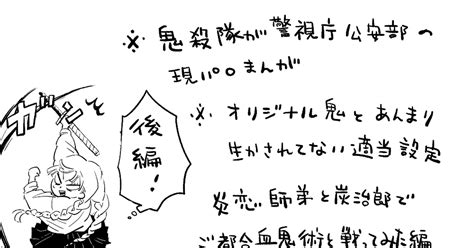 ※ 鬼殺隊が警視庁公安部の
現パロまんが
※ オリジナル鬼とあんまり
生かされてない適当設定
炎恋師弟と炭治郎で
ご都合血鬼術と戦ってみた編
後編!
ガン